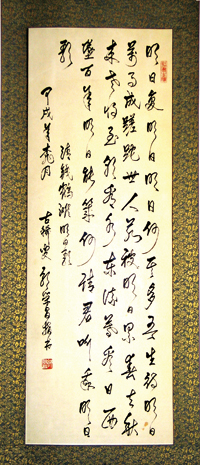 明日復明日明日何其多吾生待明日
萬事成蹉跎世人若被明日累春去秋
来老将至朝看水东流暮看日西
墜百年明日能幾何請君听我明日
歌
錢鶴灘明日歌
甲戌年 月
古稀叟